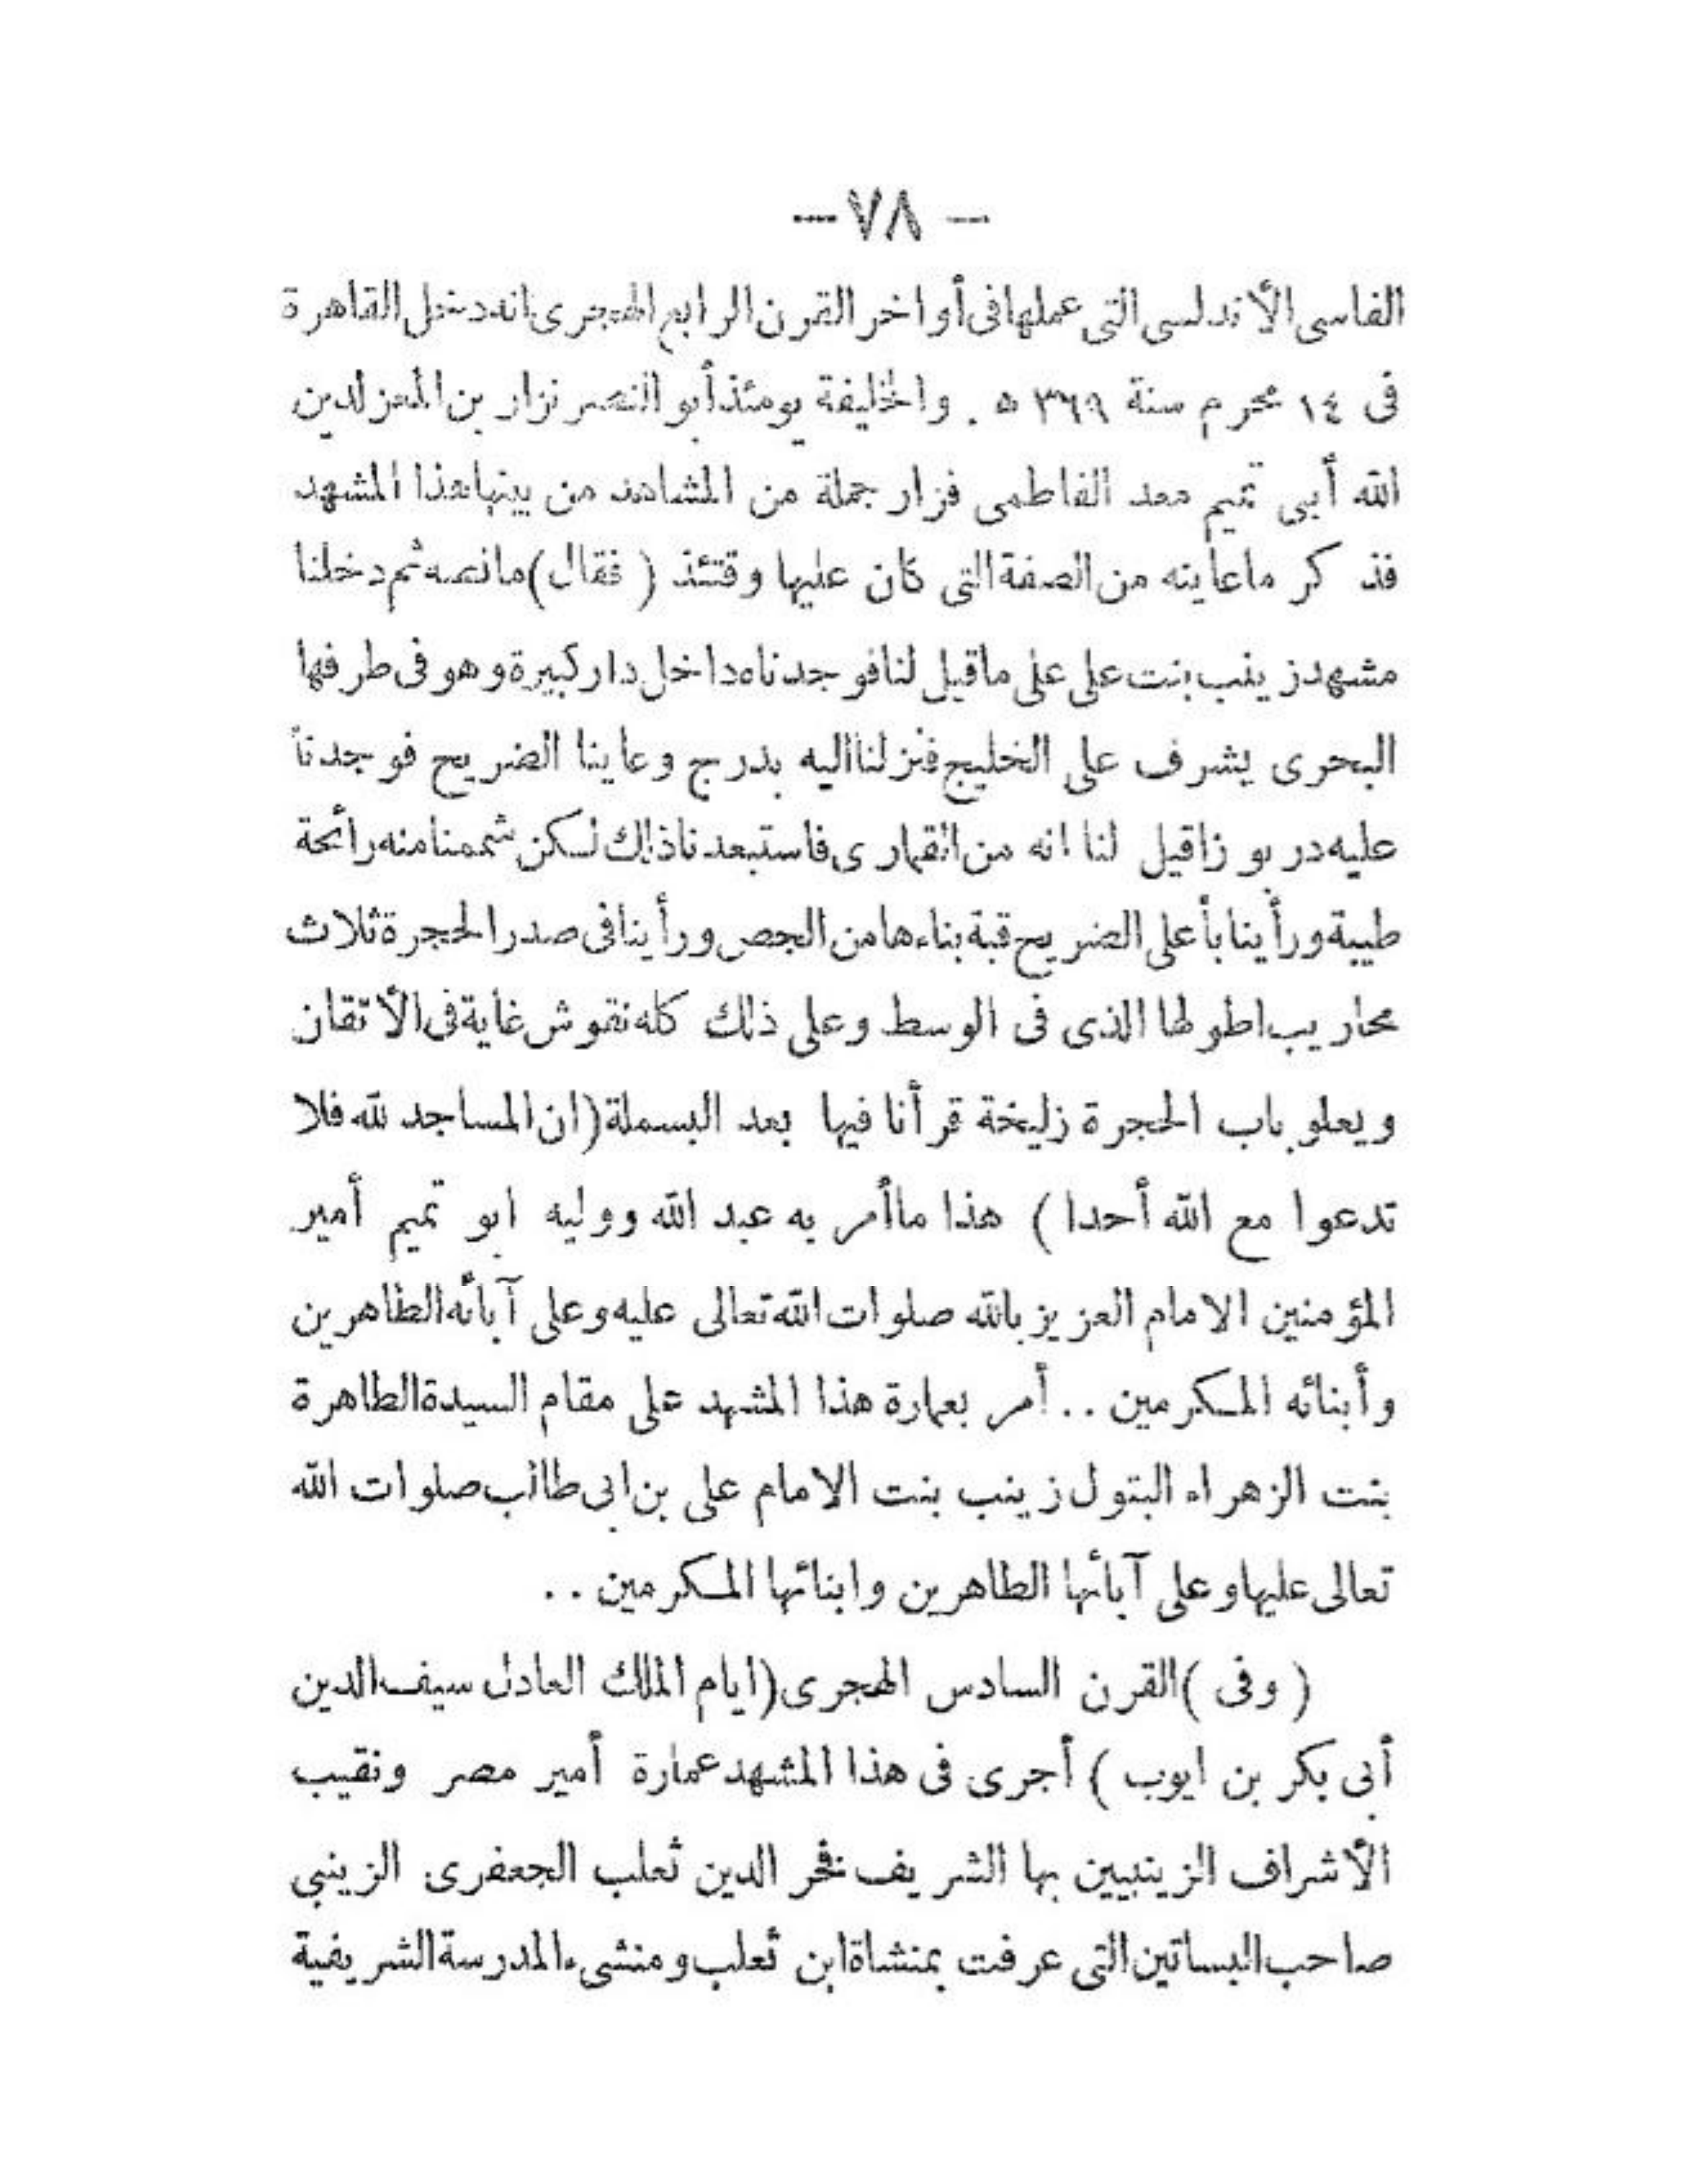 — ٧٨ —
الفاسى الأندلسى التى عملها فى أواخر القرن الرابع الهجرى انه دخل القاهرة
فى ١٤ محرم سنة ٣٦٩ ه . والخليفة يومئذ أبو النصر نزار بن المعز لدين
الله أبى تميم معد الفاطمى فزار جملة من المشاهد من بينها هذا المشهد
فذ كر ماعاينه من الصفة التى كان عليها وقتئذ ( فقال ) مانصه ثم دخلنا
مشهد زينب بنت على على ماقيل لنا فوجدناه داخل دار كبيرة وهو فى طرفها
البحرى يشرف على الخليج فنزلنا اليه بدرج وعاينا الضريح فوجدنا
عليه دربوزا قيل لنا انه من القمارى فاستبعدنا ذلك لكن شممنا منه رائحة
طيبة ورأينا بأعلى الضريح قبة بناءها من الجص ورأينا فى صدر الحجرة ثلاث
محاريب اطولها الذى فى الوسط وعلى ذلك كله نقوش غاية فى الأتقان
ويعلو باب الحجرة زليخة قرأنا فيها بعد البسملة ( ان المساجد لله فلا
تدعوا مع الله أحدا ) هذا ماأمر به عبد الله ووليه ابو تميم أمير
المؤمنين الامام العزيز بالله صلوات الله تعالى عليه وعلى آبائه الطاهرين
وأبنائه المكرمين . . أمر بعمارة هذا المشهد على مقام السيدة الطاهرة
بنت الزهراء البتول زينب بنت الامام على بن ابى طالب صلوات الله
تعالى عليها وعلى آبائها الطاهرين وابنائها المكرمين . .
( وفى ) القرن السادس الهجرى ( ايام الملك العادل سيف الدين
أبى بكر بن ايوب ) أجرى فى هذا المشهد عمارة أمير مصر ونقيب
الأشراف الزينبيين بها الشريف فخر الدين ثعلب الجعفرى الزينبي
صاحب البساتين التى عرفت بمنشاة ابن ثعلب ومنشىء المدرسة الشريفية